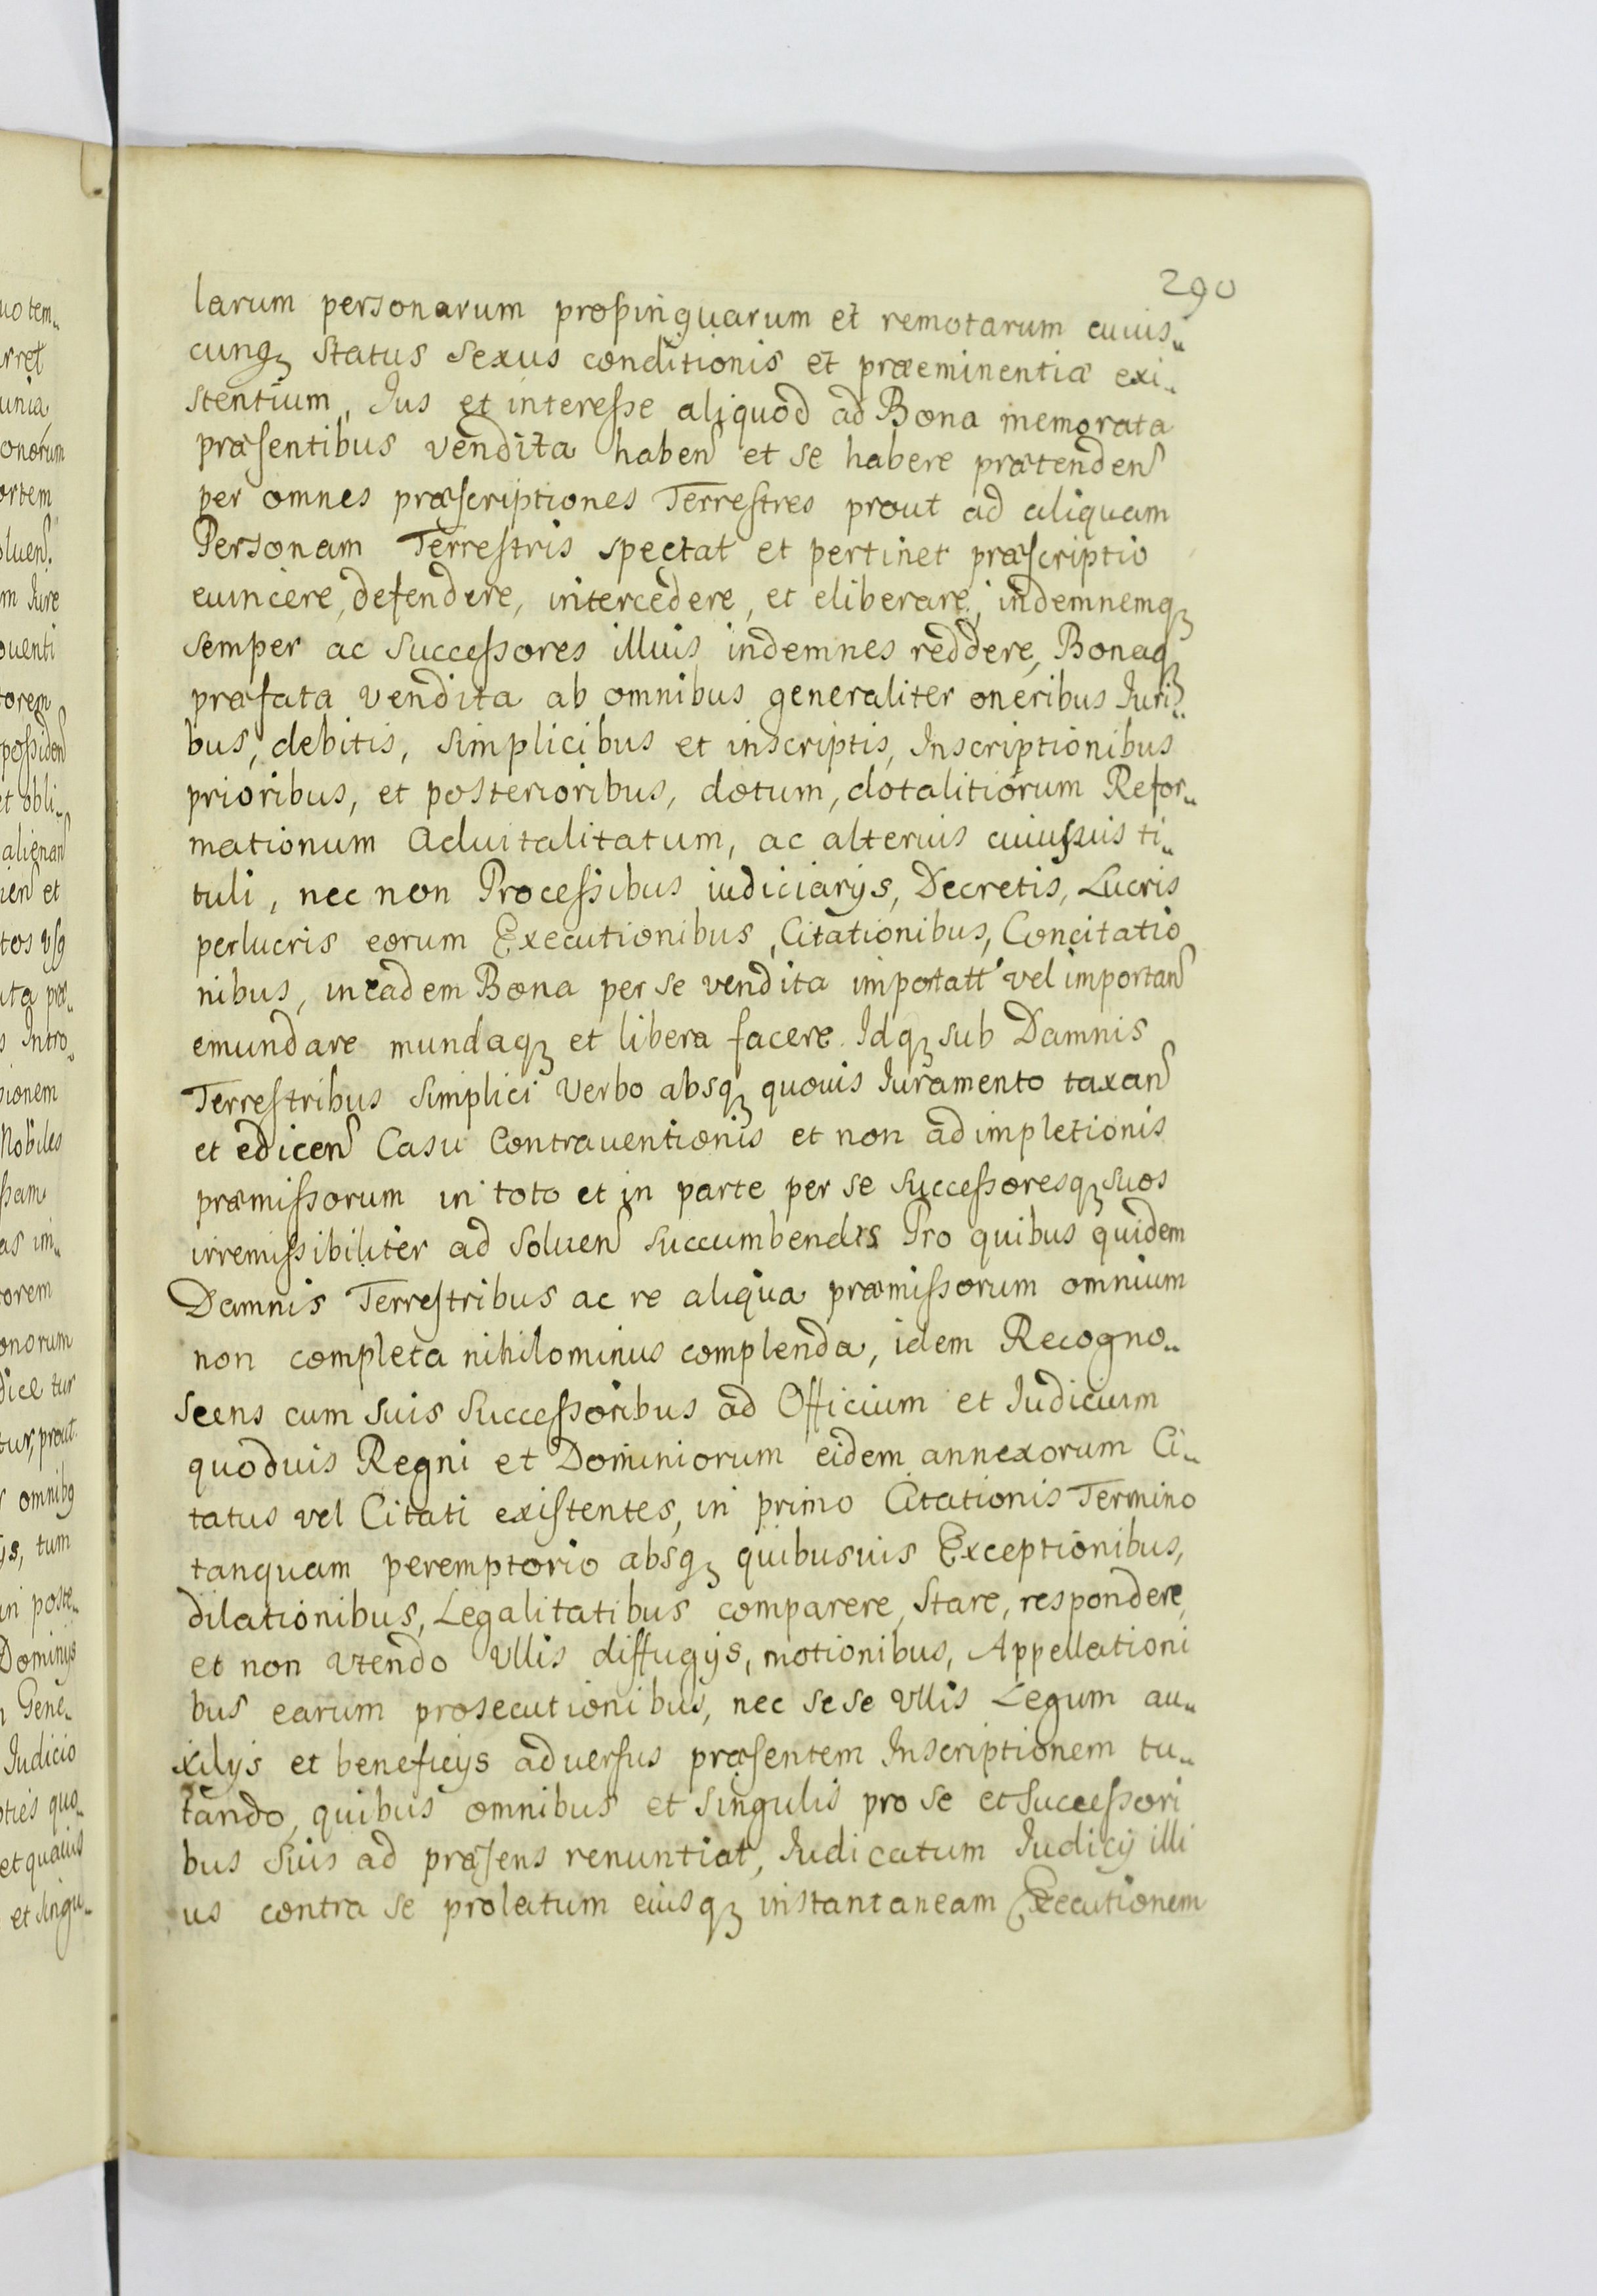 290
larum personarum propinquarum et remotarum cuius„
cunqꝫ status sexus conditionis et præeminentiæ exi„
stentium, Ius et interesse aliquod ad Bona memorata
præsentibus vendita haben et se habere prætenden
per omnes præscriptiones Terrestres prout ad aliquam
Personam Terrestris spectat et pertinet præscriptio
euincere, defendere, intercedere, et eliberare, indemnemqꝫ
semper ac Successores illius indemnes reddere, Bonaqꝫ
præfata vendita ab omnibus generaliter oneribus Iuri„
bus, debitis, simplicibus et inscriptis, Inscriptionibus
prioribus, et posterioribus, dotum, dotalitiorum Refor„
mationum Aduitalitatum, ac alterius cuiusuis ti„
tuli, nec non Processibus iudiciarijs, Decretis, Lucris
perlucris eorum Executionibus, Citationibus, Concitatio
nibus, in eadem Bona per se vendita importatt vel importan
emundare mundaqꝫ et libera facere. Idqꝫ sub Damnis
Terrestribus simplici verbo absqꝫ quouis Iuramento taxan
et edicen Casu Contrauentionis et non adimpletionis
præmissorum in toto et in parte per se successoresqꝫ suos
irremissibiliter ad soluen succumbendis Pro quibus quidem
Damnis Terrestribus ac re aliqua præmissorum omnium
non completa nihilominus complenda, idem Recogno„
scens cum suis Successoribus ad Officium et Iudicium
quoduis Regni et Dominiorum eidem annexorum Ci„
tatus vel Citati existentes, in primo Citationis Termino
tanquam peremptorio absqꝫ quibusuis Exceptionibus,
dilationibus, Legalitatibus comparere, stare, respondere,
et non vtendo vllis diffugijs, motionibus, Appellationi
bus earum prosecutionibus, nec sese vllis Legum au„
xilijs et beneficijs aduersus præsentem Inscriptionem tu„
tando, quibus omnibus et singulis pro se et successori
bus suis ad præsens renuntiat, Iudicatum Iudicij illi
us contra se prolatum eiusqꝫ instantaneam Executionem